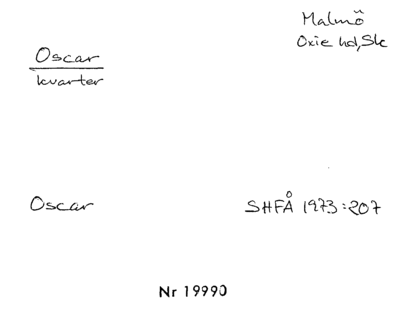 Malmö
Oxie hd, Sk
Oscar
kvarter
Oscar
SHFÅ 1973:207
Nr 19990